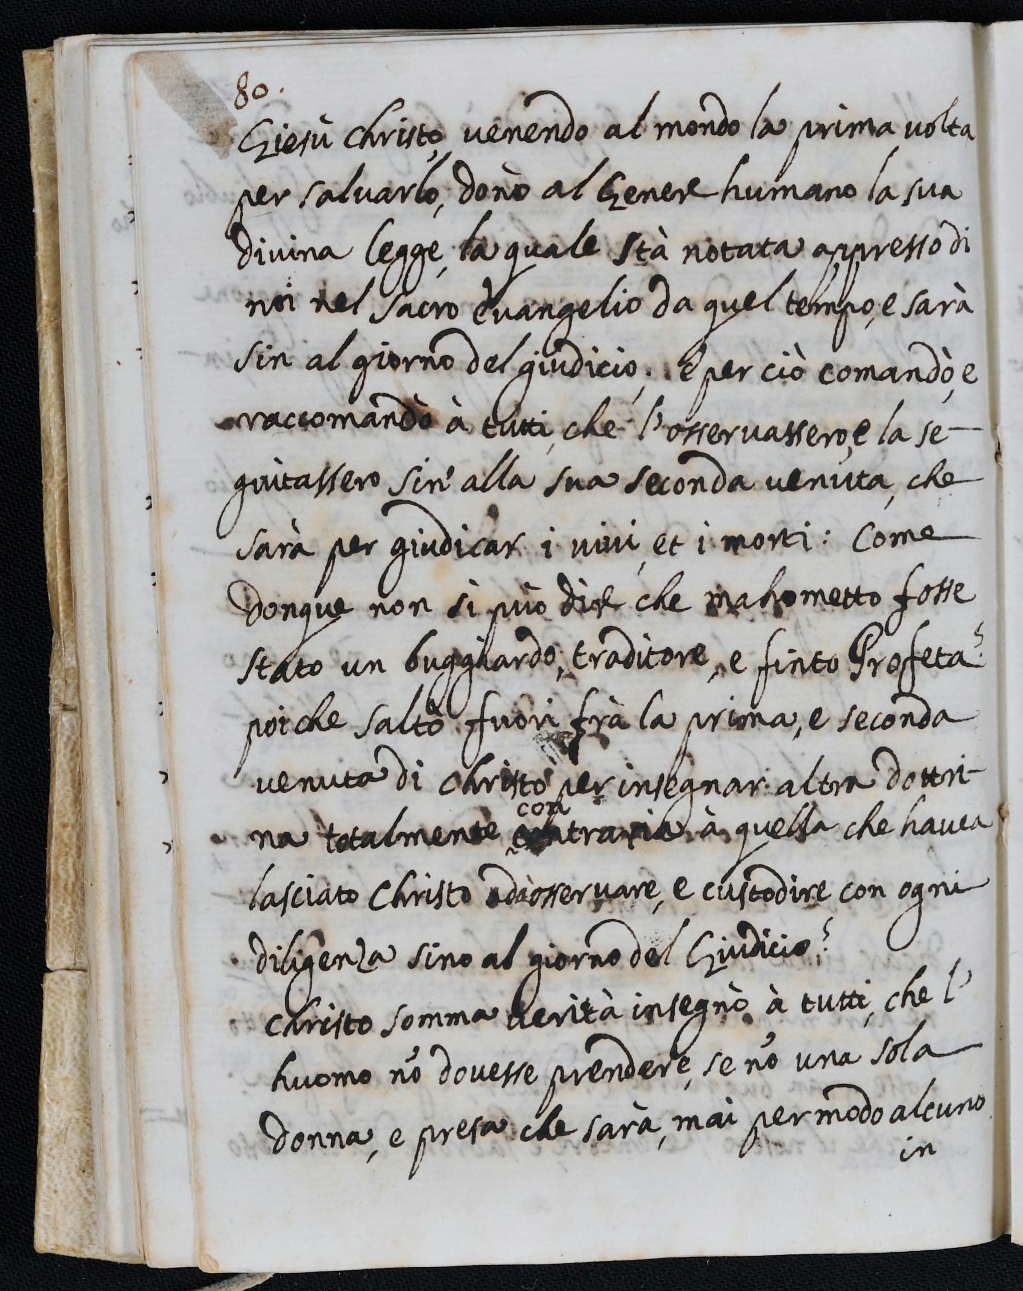 80.
Giesù Christo, venendo al mondo la prima volta
per salvarlo, donò al Genere humano la sua
divina legge, la quale stà notata appresso di
noi nel sacro evangelio da quel tempo, e sarà
sin al giorno del giudicio. E per ciò comandò, e
raccomandò à tutti, che l'osservassero, e la se-
guitassero sin' alla sua seconda venuta, che
sarà per giudicar i vivi, et i morti: Come
donque non si può dire che mahometto fosse
stato un buggiardo, traditore, e finto Profeta?
poiche saltò fuori frà la prima, e seconda
venuta di Christo per insegnar altra dottri-
na totalmente contraria à quella che havea
lasciato Christo da osservare, e custodire con ogni
diligenza sino al giorno del Giudicio?
Christo somma verità insegnò à tutti, che l'
huomo nõ dovesse prendere, se nõ una sola
donna, e presa che sarà, mai per modo alcuno
in